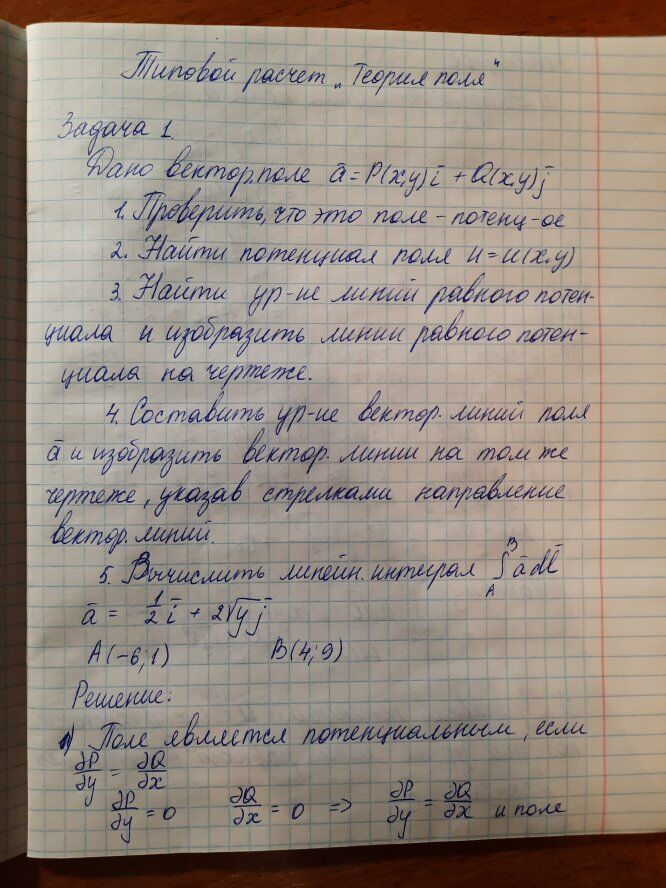 Типовой расчет „Теория поля"
Задача 1.
Дано вектор.поле ā = P(x;y)ī + Q(x,y)j̄
1. Проверить, что это поле - потенц-ое
2. Найти потенциал поля u = u(x,y)
3. Найти ур-ие линий равного потен-
циала и изобразить линии равного потен-
циала на чертеже.
4. Составить ур-ие вектор. линий поля
ā и изобразить вектор. линии на том же
чертеже, указав стрелками направление
вектор. линий.
5. Вычислить линейн. интеграл ∫_A^B ā dl̄
ā = 1/2 ī + 2√y j̄
A(-6;1) B(4;9)
Решение:
1) Поле является потенциальным, если
∂P/∂y = ∂Q/∂x
∂P/∂y = 0 ∂Q/∂x = 0 => ∂P/∂y = ∂Q/∂x и поле